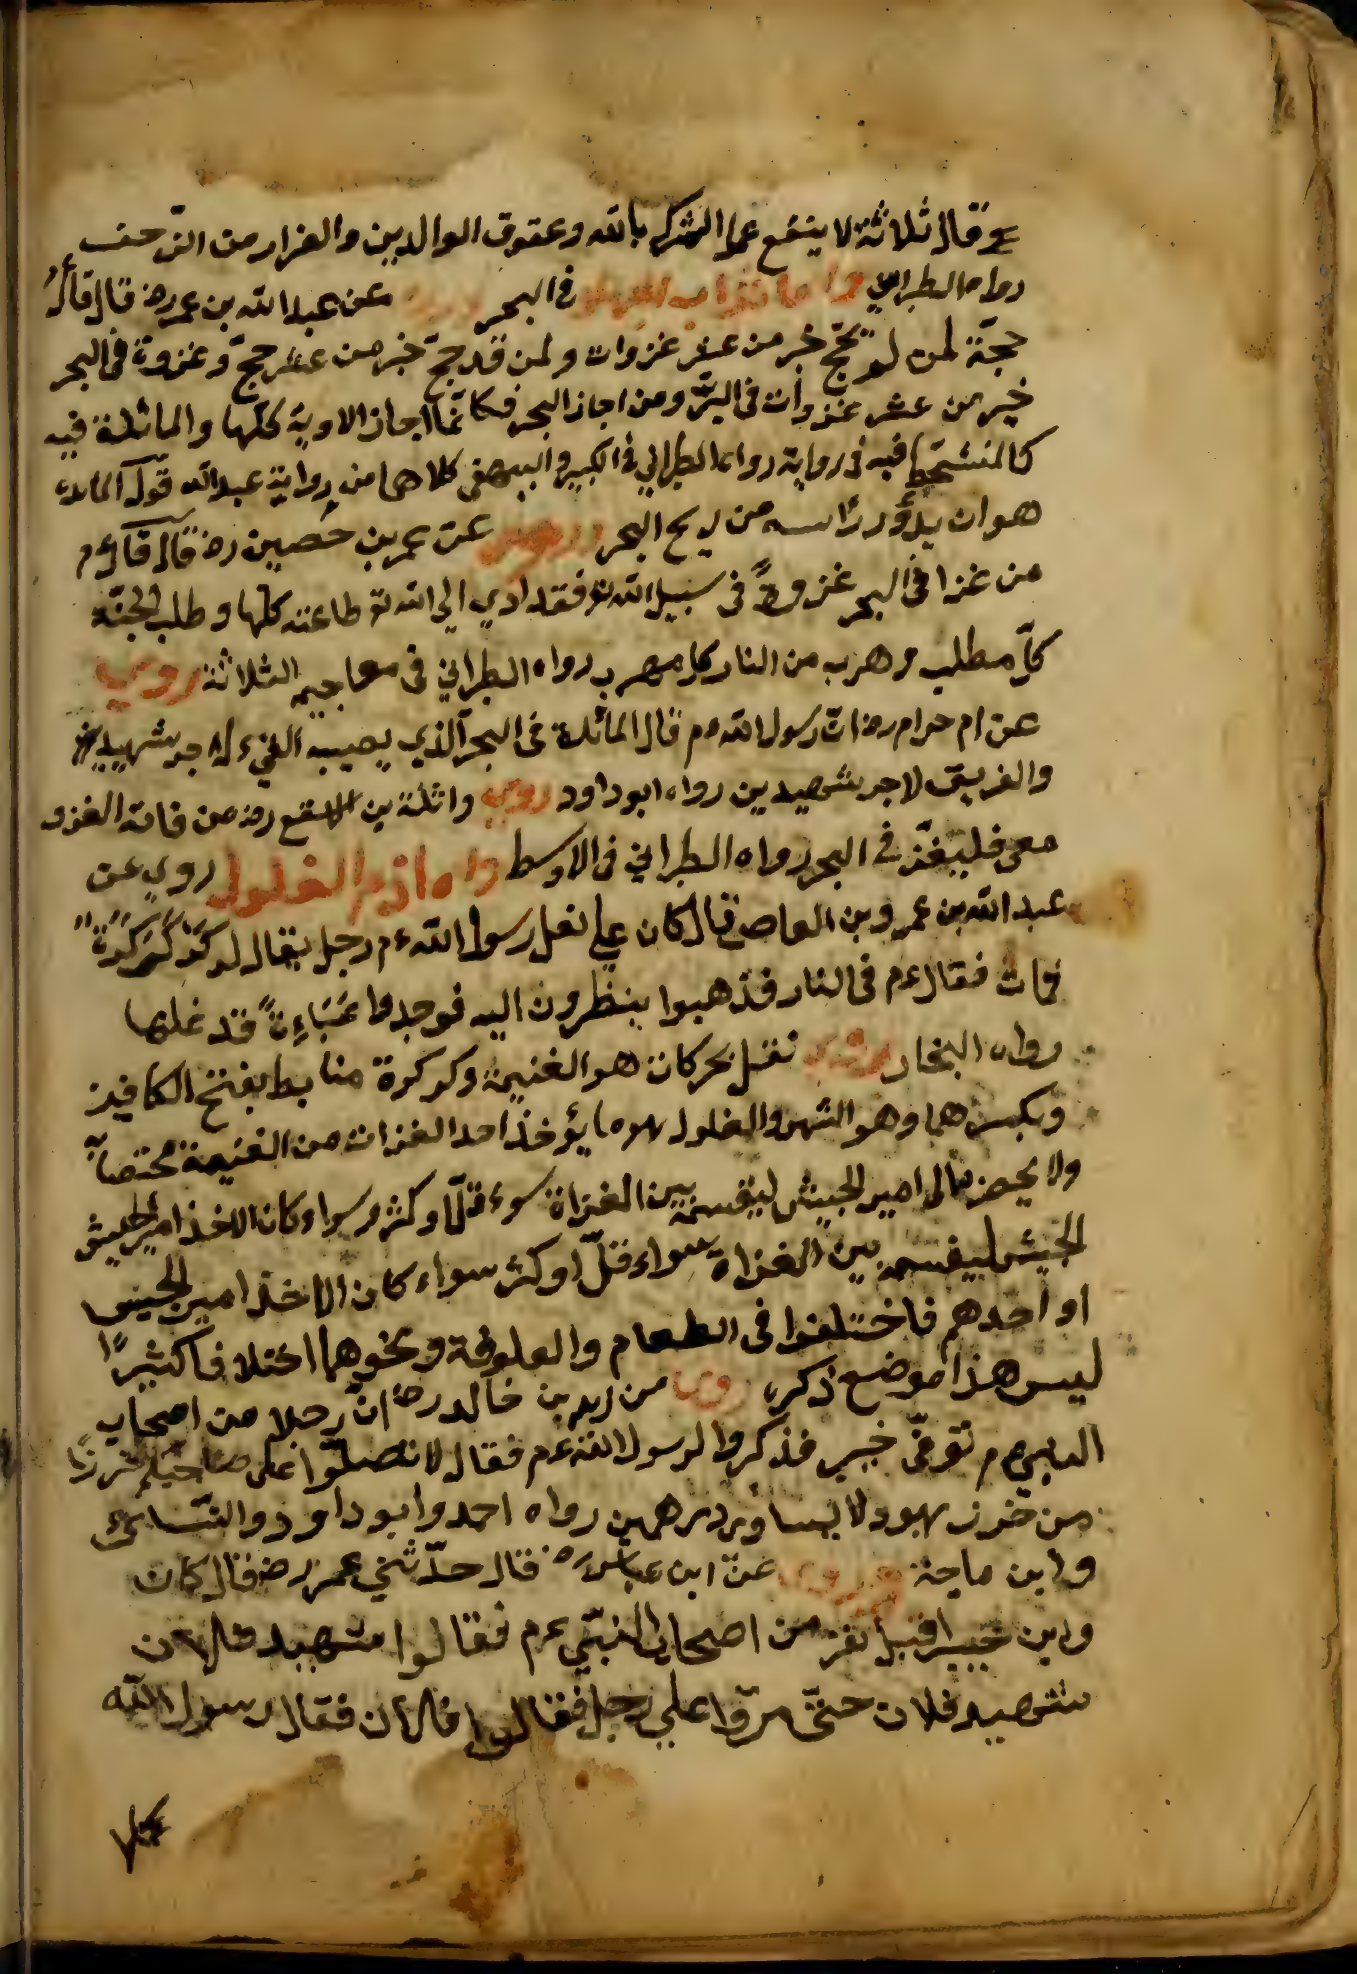 عم قال ثلاثة لا ينفع عمل الشرك بالله وعقوق الوالدين والفرار من الزحف
رواه الطبراني في البحر عن عبد الله بن عمر رض قال قال
حجة لمن لم يحج خير من عشر غزوات ولمن قد حج خير من عشر حجج وغزوة في البحر
خير من عشر غزوات في البر ومن اجاز البحر فكانما اجاز الاودية كلها والمائدة فيه
كالمتشحط فيه في رواية رواه الطبراني في الكبير والبيهقي كلاهما من رواية عبد الله قوله المائد
هو ان يدور راسه من ريح البحر وروي عن عمر بن حصين رض قال قال عم
من غزا في البحر غزوة في سبيل الله تع فقد ادي الي الله تع طاعته كلها وطلب الجنة
كل مطلب وهرب من النار كل مهرب رواه الطبراني في معاجيمه الثلاثة روي
عن ام حرام رض ان رسول الله عم قال المائد في البحر الذي يصيبه القيء له اجر شهيد
والغريق له اجر شهيدين رواه ابو داود روي واثلة بن الاسقع رض من فاته الغزو
معي فليغز في البحر رواه الطبراني في الاوسط واما ذم الغلول روي عن
عبد الله بن عمرو بن العاص قال كان علي ثقل رسول الله عم رجل يقال له كركرة
فمات فقال عم في النار فذهبوا ينظرون اليه فوجدوا عباءة قد غلها
رواه البخاري ثقل بحركات هو الغنيمة وكركرة ضابط بفتح الكافين
وبكسرهما وهو اشهر والغلول هو ما يؤخذ احد الغزات من الغنيمة مختصا
ولا يحضر الي امير الجيش ليقسم بين الغزاة سواء قل او كثر وسواء كان الاخذ امير الجيش
الجيش ليقسمه بين الغزاة سواء قل او كثر سواء كان الاخذ امير الجيش
او احدهم فاختلفوا في الطعام والعلوفة ونحوهما اختلافا كثيرا
ليس هذا موضع ذكره روي عن زيد بن خالد رض ان رجلا من اصحاب
النبي عم توفي خيبر فذكروا لرسول الله عم فقال لا تصلوا علي صاحبكم خرزا
من خرز يهود لا يساوي درهمين رواه احمد وابو داود والنسائي
وابن ماجة وروي عن ابن عباس رض قال حدثني عمر رض قال كان
وابن خيبر اقبل نفر من اصحاب النبي عم فقالوا شهيد فلان
شهيد فلان حتى مروا علي رجل فقالوا فلان فقال رسول الله